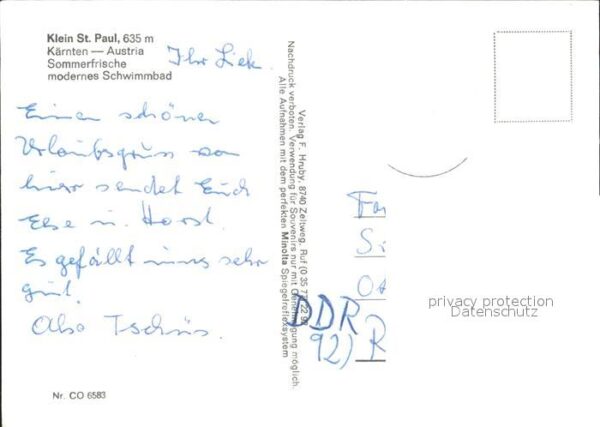 Klein St. Paul, 635 m
Kärnten — Austria
Sommerfrische
modernes Schwimmbad
Ihr Lieb.
Einen schönen
Urlaubsgruss von
hier sendet Euch
Else u. Horst.
Es gefällt uns sehr
gut.
Also Tschüs.
Nr. CO 6583
Verlag F. Hruby, 8740 Zeltweg, Ruf (0 35 77) 22 9
Nachdruck verboten. Verwendung für Souvenirs nur mit Genehmigung möglich.
Alle Aufnahmen mit dem perfekten Minolta Spiegelreflexsystem
Fa
S
O
DDR
92) R
privacy protection
Datenschutz